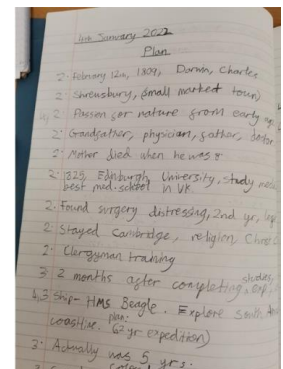 4th January 2022
Plan
2· February 12th, 1809, Darwin, Charles
2· Shrewsbury, small market town)
2· Passion for nature from early
2· Grandfather, physician, father, doctor
2· Mother died when he was 8
2· 1825, Edinburgh University, study
best med. school in UK.
2· Found surgery distressing, 2nd yr,
2· Stayed Cambridge, religion
2· Clergyman training
3· 2 months after completing studies,
4,3 Ship - HMS Beagle. Explore South
coastline. plan: (2 yr expedition)
3· Actually was 5 yrs.